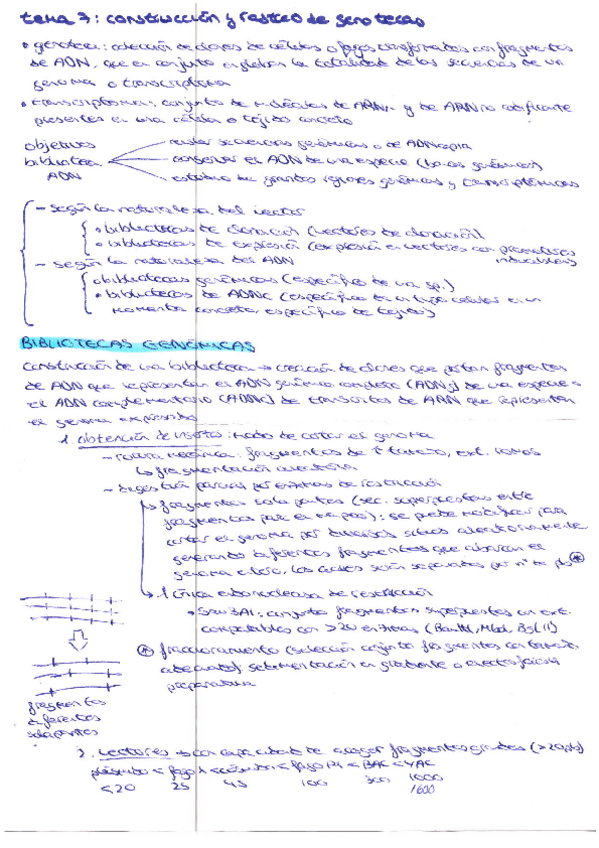 tema 7: construcción y rastreo de genotecas
• genoteca: colección de clones de células o fagos transformados con fragmentos
de ADN, que en conjunto engloban la totalidad de las secuencias de un
genoma o transcriptoma
• transcriptoma: conjunto de moléculas de ARNm y de ARN no codificante
presentes en una célula o tejido concreto
objetivos
biblioteca
ADN
aislar secuencias genómicas o de ADN copia
conservar el ADN de una especie (bancos genómicos)
estudio de grandes regiones genómicas y transcriptómicas
- según la naturaleza del vector
• bibliotecas de clonación (vectores de clonación)
• bibliotecas de expresión (expresión en vectores con promotores
inducibles)
- según la naturaleza del ADN
• bibliotecas genómicas (específico de una sp.)
• bibliotecas de ADNc (específico de un tipo celular en un
momento concreto, específico de tejido)
BIBLIOTECAS GENÓMICAS
Construcción de una biblioteca → creación de clones que portan fragmentos
de ADN que representan el ADN genómico completo (ADNg) de una especie o
el ADN complementario (ADNc) de transcritos de ARN que representen
el genoma expresado
1. obtención de inserto: modo de cortar el genoma
- rotura mecánica: fragmentos de ≠ tamaño, ext. romos
↳ fragmentación aleatoria
- digestión parcial por enzimas de restricción
↳ fragmentos solapantes (sec. superpuestas entre
fragmentos para el mapeo): se puede modificar para
cortar el genoma por diversos sitios aleatoriamente
generando diferentes fragmentos que abarcan el
genoma entero, los cuales serán separados por nº de pb *
↳ 1 única endonucleasa de restricción
• Sau3AI: conjunto fragmentos superpuestos con ext.
compatibles con >20 enzimas (BamHI, MboI, BglII)
* fraccionamiento (selección conjunto fragmentos con tamaño
adecuado) sedimentación en gradiente o electroforesis
preparativa
fragmentos
diferentes
solapantes
2. vectores → con capacidad de acoger fragmentos grandes (>20pb)
plásmido < fago λ < cósmidos < fago P1 < BAC < YAC
<20 25 45 100 300 1000
1600